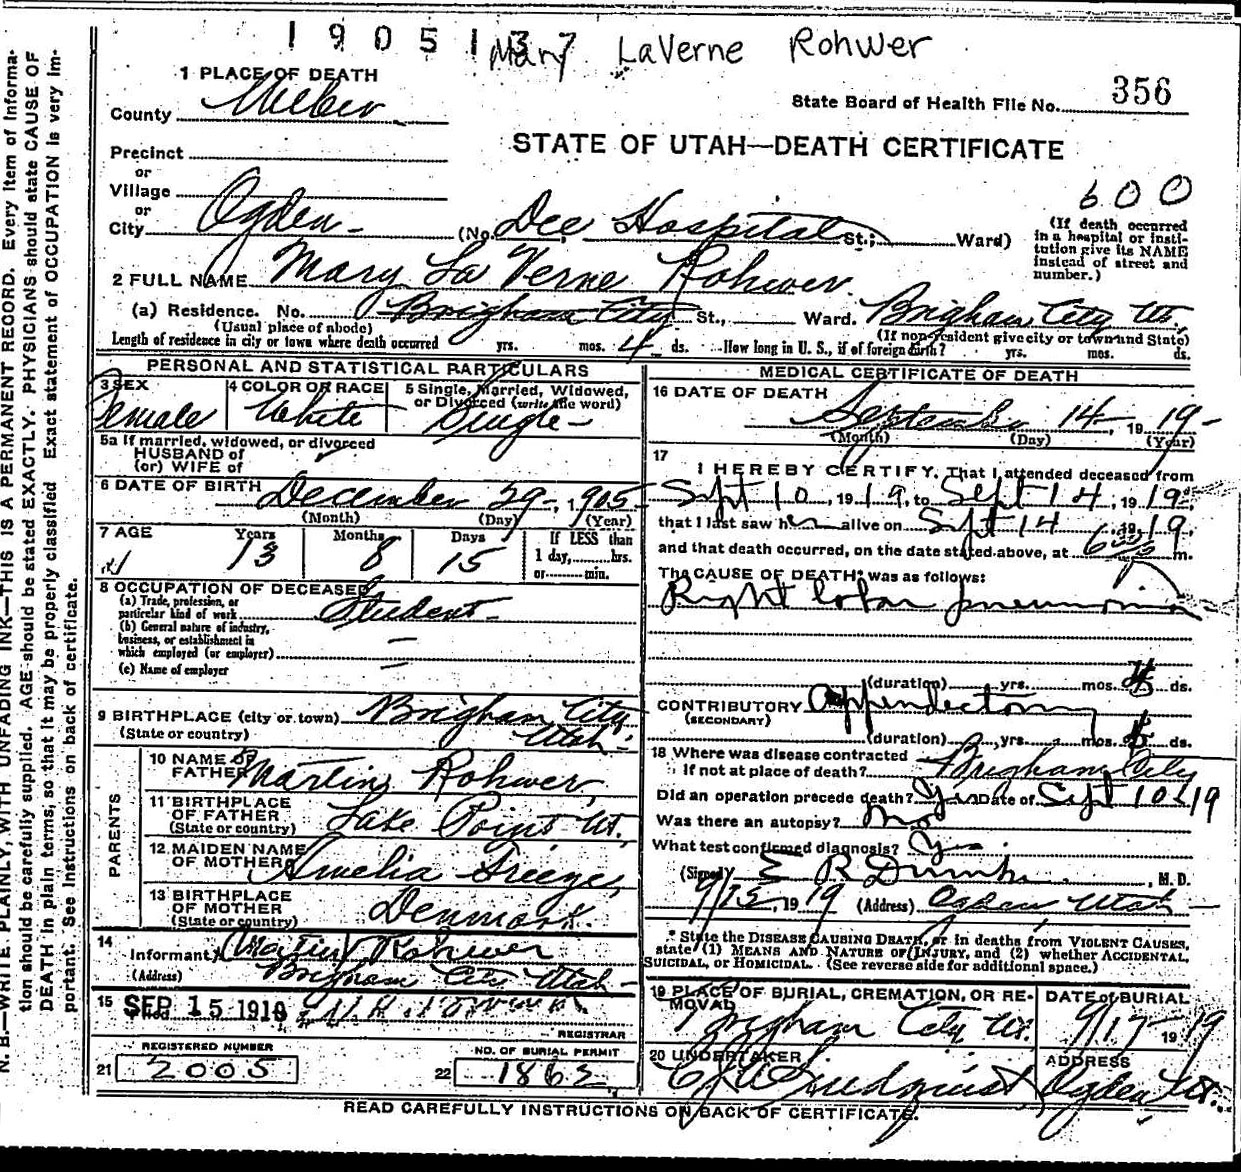 1905137 Mary LaVerne Rohwer
1 PLACE OF DEATH
County Weber
State Board of Health File No. 356
STATE OF UTAH—DEATH CERTIFICATE
Precinct
or
Village
or
City Ogden (No. Dee Hospital St.; Ward)
600
(If death occurred in a hospital or institution give its NAME instead of street and number.)
2 FULL NAME Mary La Verne Rohwer
(a) Residence. No. Brigham City St., Ward. Brigham City Ut.
(Usual place of abode) (If non-resident give city or town and State)
Length of residence in city or town where death occurred yrs. mos. 4 ds. How long in U. S., if of foreign birth? yrs. mos. ds.
PERSONAL AND STATISTICAL PARTICULARS
3 SEX Female
4 COLOR OR RACE White
5 Single, Married, Widowed, or Divorced (write the word) Single
5a If married, widowed, or divorced
HUSBAND of
(or) WIFE of
6 DATE OF BIRTH December 29, 1905
(Month) (Day) (Year)
7 AGE Years 13 Months 8 Days 15
If LESS than
1 day, hrs.
or min.
8 OCCUPATION OF DECEASED
(a) Trade, profession, or particular kind of work Student
(b) General nature of industry, business, or establishment in which employed (or employer) —
(c) Name of employer —
9 BIRTHPLACE (city or town) Brigham City
(State or country) Utah
PARENTS
10 NAME OF FATHER Martin Rohwer
11 BIRTHPLACE OF FATHER (State or country) Lake Point Ut.
12 MAIDEN NAME OF MOTHER Amelia
13 BIRTHPLACE OF MOTHER (State or country) Denmark
14 Informant Martin Rohwer
(Address) Brigham City Utah
15 SEP 15 1919
REGISTRAR
REGISTERED NUMBER
21 2005
NO. OF BURIAL PERMIT
22 1862
MEDICAL CERTIFICATE OF DEATH
16 DATE OF DEATH
September 14, 1919
(Month) (Day) (Year)
17 I HEREBY CERTIFY, That I attended deceased from
Sept 10, 1919, to Sept 14, 1919,
that I last saw her alive on Sept 14 1919,
and that death occurred, on the date stated above, at m.
The CAUSE OF DEATH* was as follows:
Right lobar pneumonia
(duration) yrs. mos. ds.
CONTRIBUTORY Appendectomy
(SECONDARY)
(duration) yrs. mos. ds.
18 Where was disease contracted
If not at place of death? Brigham City
Did an operation precede death? Yes Date of Sept 10 1919
Was there an autopsy? No
What test confirmed diagnosis?
(Signed) E R Dumke, M. D.
9/15, 1919 (Address) Ogden Utah
* State the DISEASE CAUSING DEATH, or in deaths from VIOLENT CAUSES, state (1) MEANS AND NATURE OF INJURY, and (2) whether ACCIDENTAL, SUICIDAL, or HOMICIDAL. (See reverse side for additional space.)
19 PLACE OF BURIAL, CREMATION, OR REMOVAL Brigham City Ut.
DATE of BURIAL 9/17 1919
20 UNDERTAKER Lindquist
ADDRESS Ogden Ut.
READ CAREFULLY INSTRUCTIONS ON BACK OF CERTIFICATE.
N. B.—WRITE PLAINLY, WITH UNFADING INK—THIS IS A PERMANENT RECORD. Every item of information should be carefully supplied. AGE should be stated EXACTLY. PHYSICIANS should state CAUSE OF DEATH in plain terms, so that it may be properly classified. Exact statement of OCCUPATION is very important. See Instructions on back of certificate.